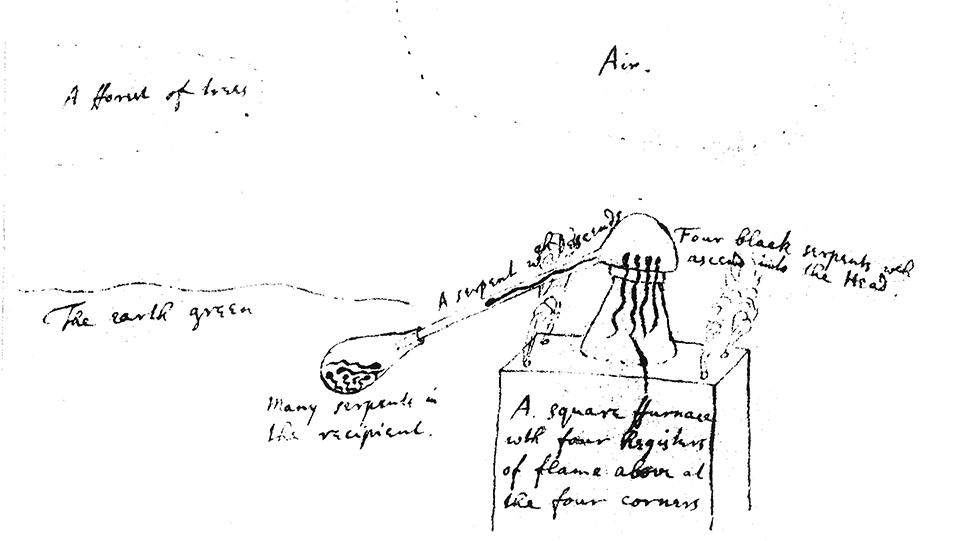 Air.
A fforest of trees
A serpent wch descends
Four black serpents wch
ascend into the Head.
The earth green
Many serpents in
the recipient.
A square ffurnace
wth four Registers
of flame above at
the four corners